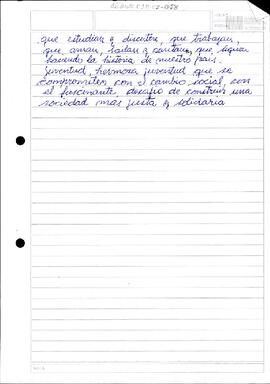 que estudian y discuten, que trabajan,
que aman, bailan y cantan, que siguen
haciendo la historia de nuestro país.
juventud, hermosa juventud que se
compromete con el cambio social, con
el fascinante desafío de construir una
sociedad más justa y solidaria